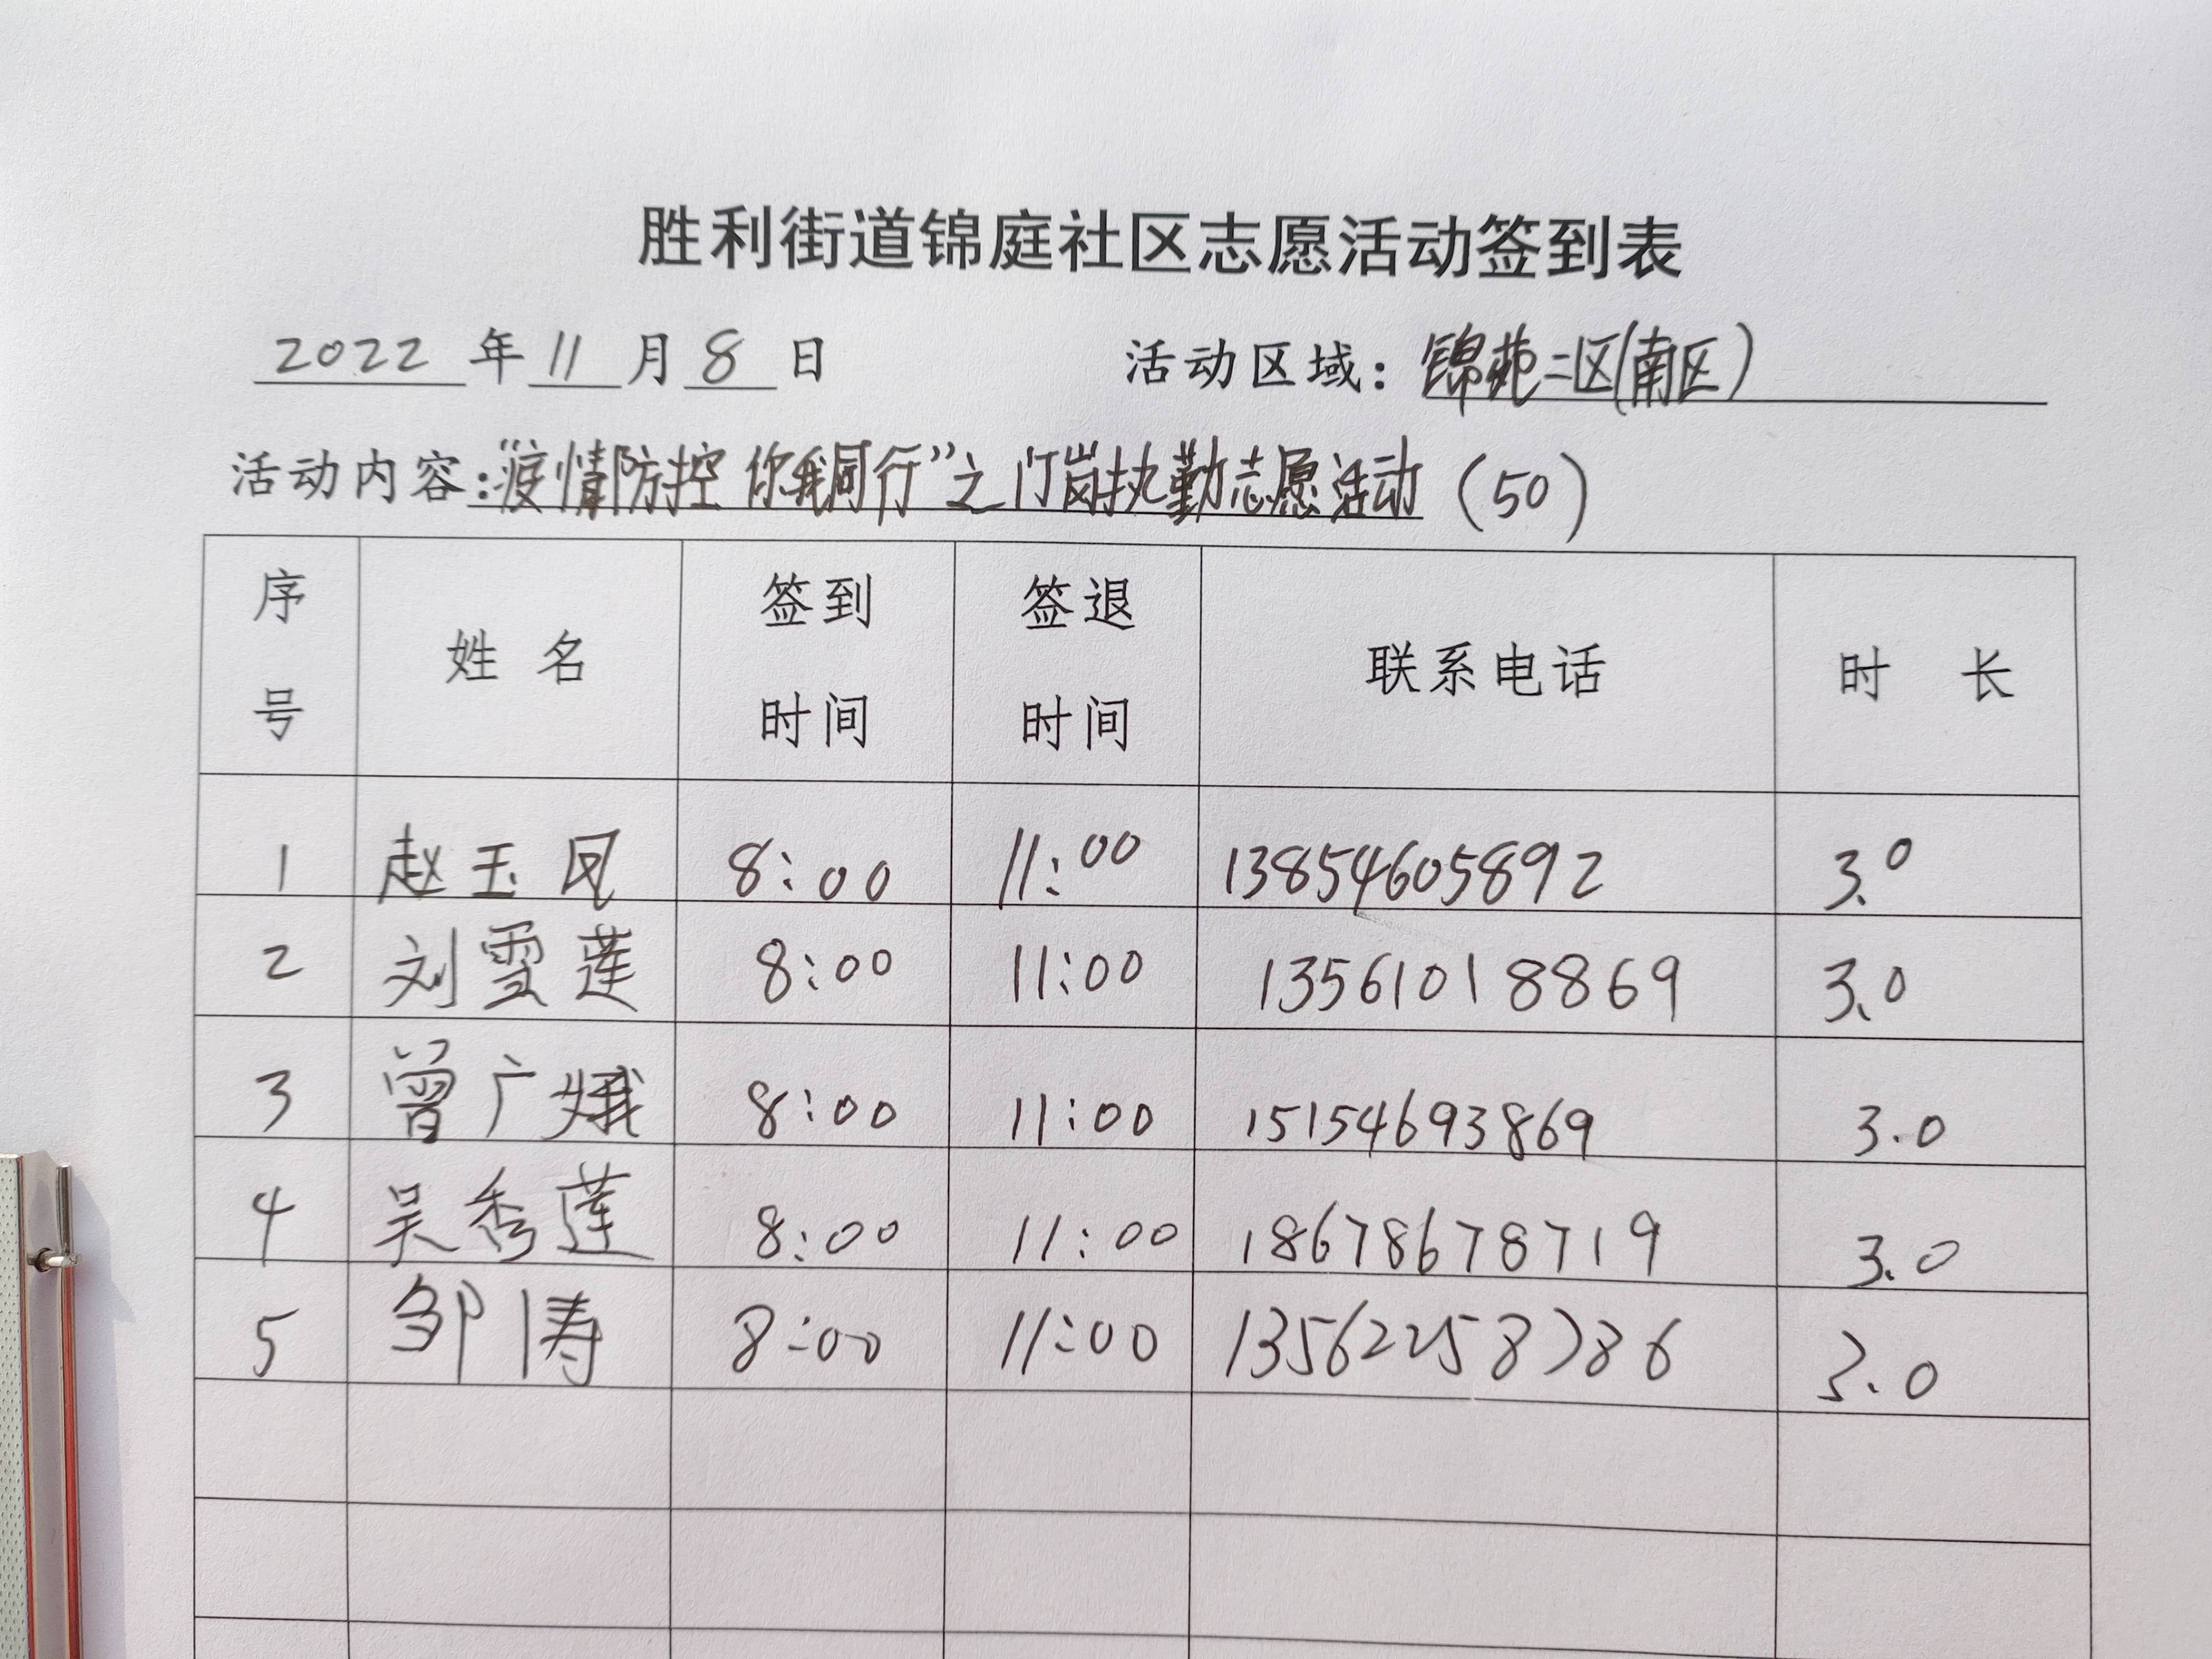 胜利街道锦庭社区志愿活动签到表
2022 年 11 月 8 日 活动区域：锦苑二区(南区)
活动内容：“疫情防控 你我同行”之门岗执勤志愿活动（50）
序号 姓名 签到时间 签退时间 联系电话 时长
1 赵玉凤 8:00 11:00 13854605892 3.0
2 刘雪莲 8:00 11:00 13561018869 3.0
3 曾广娥 8:00 11:00 15154693869 3.0
4 吴秀莲 8:00 11:00 18678678719 3.0
5 邹涛 8:00 11:00 13562258786 3.0